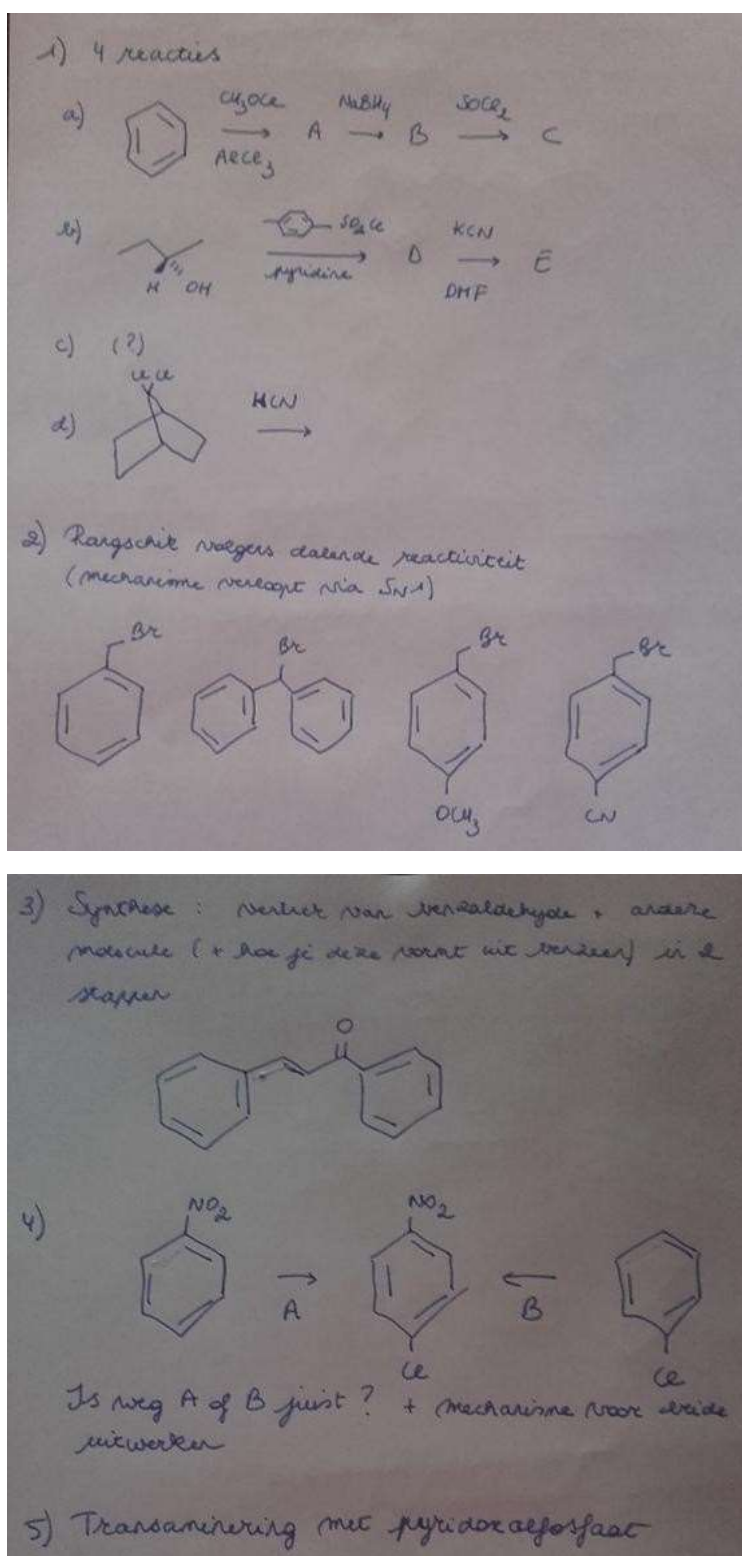 1) 4 reacties
a) CH3OCl AlCl3 A NaBH4 B SOCl2 C
b) H OH SO2Cl pyridine D KCN DMF E
c) (?)
d) Cl Cl HCN
2) Rangschik volgens dalende reactiviteit
(mechanisme verloopt via SN1)
Br Br Br Br
OCH3 CN
3) Synthese : vertrek van benzaldehyde + andere
molecule (+ hoe je deze vormt uit benzeen) in 2
stappen
O
4) NO2 NO2
A B
Cl Cl
Is weg A of B juist ? + mechanisme voor beide
uitwerken
5) Transaminering met pyridoxalfosfaat